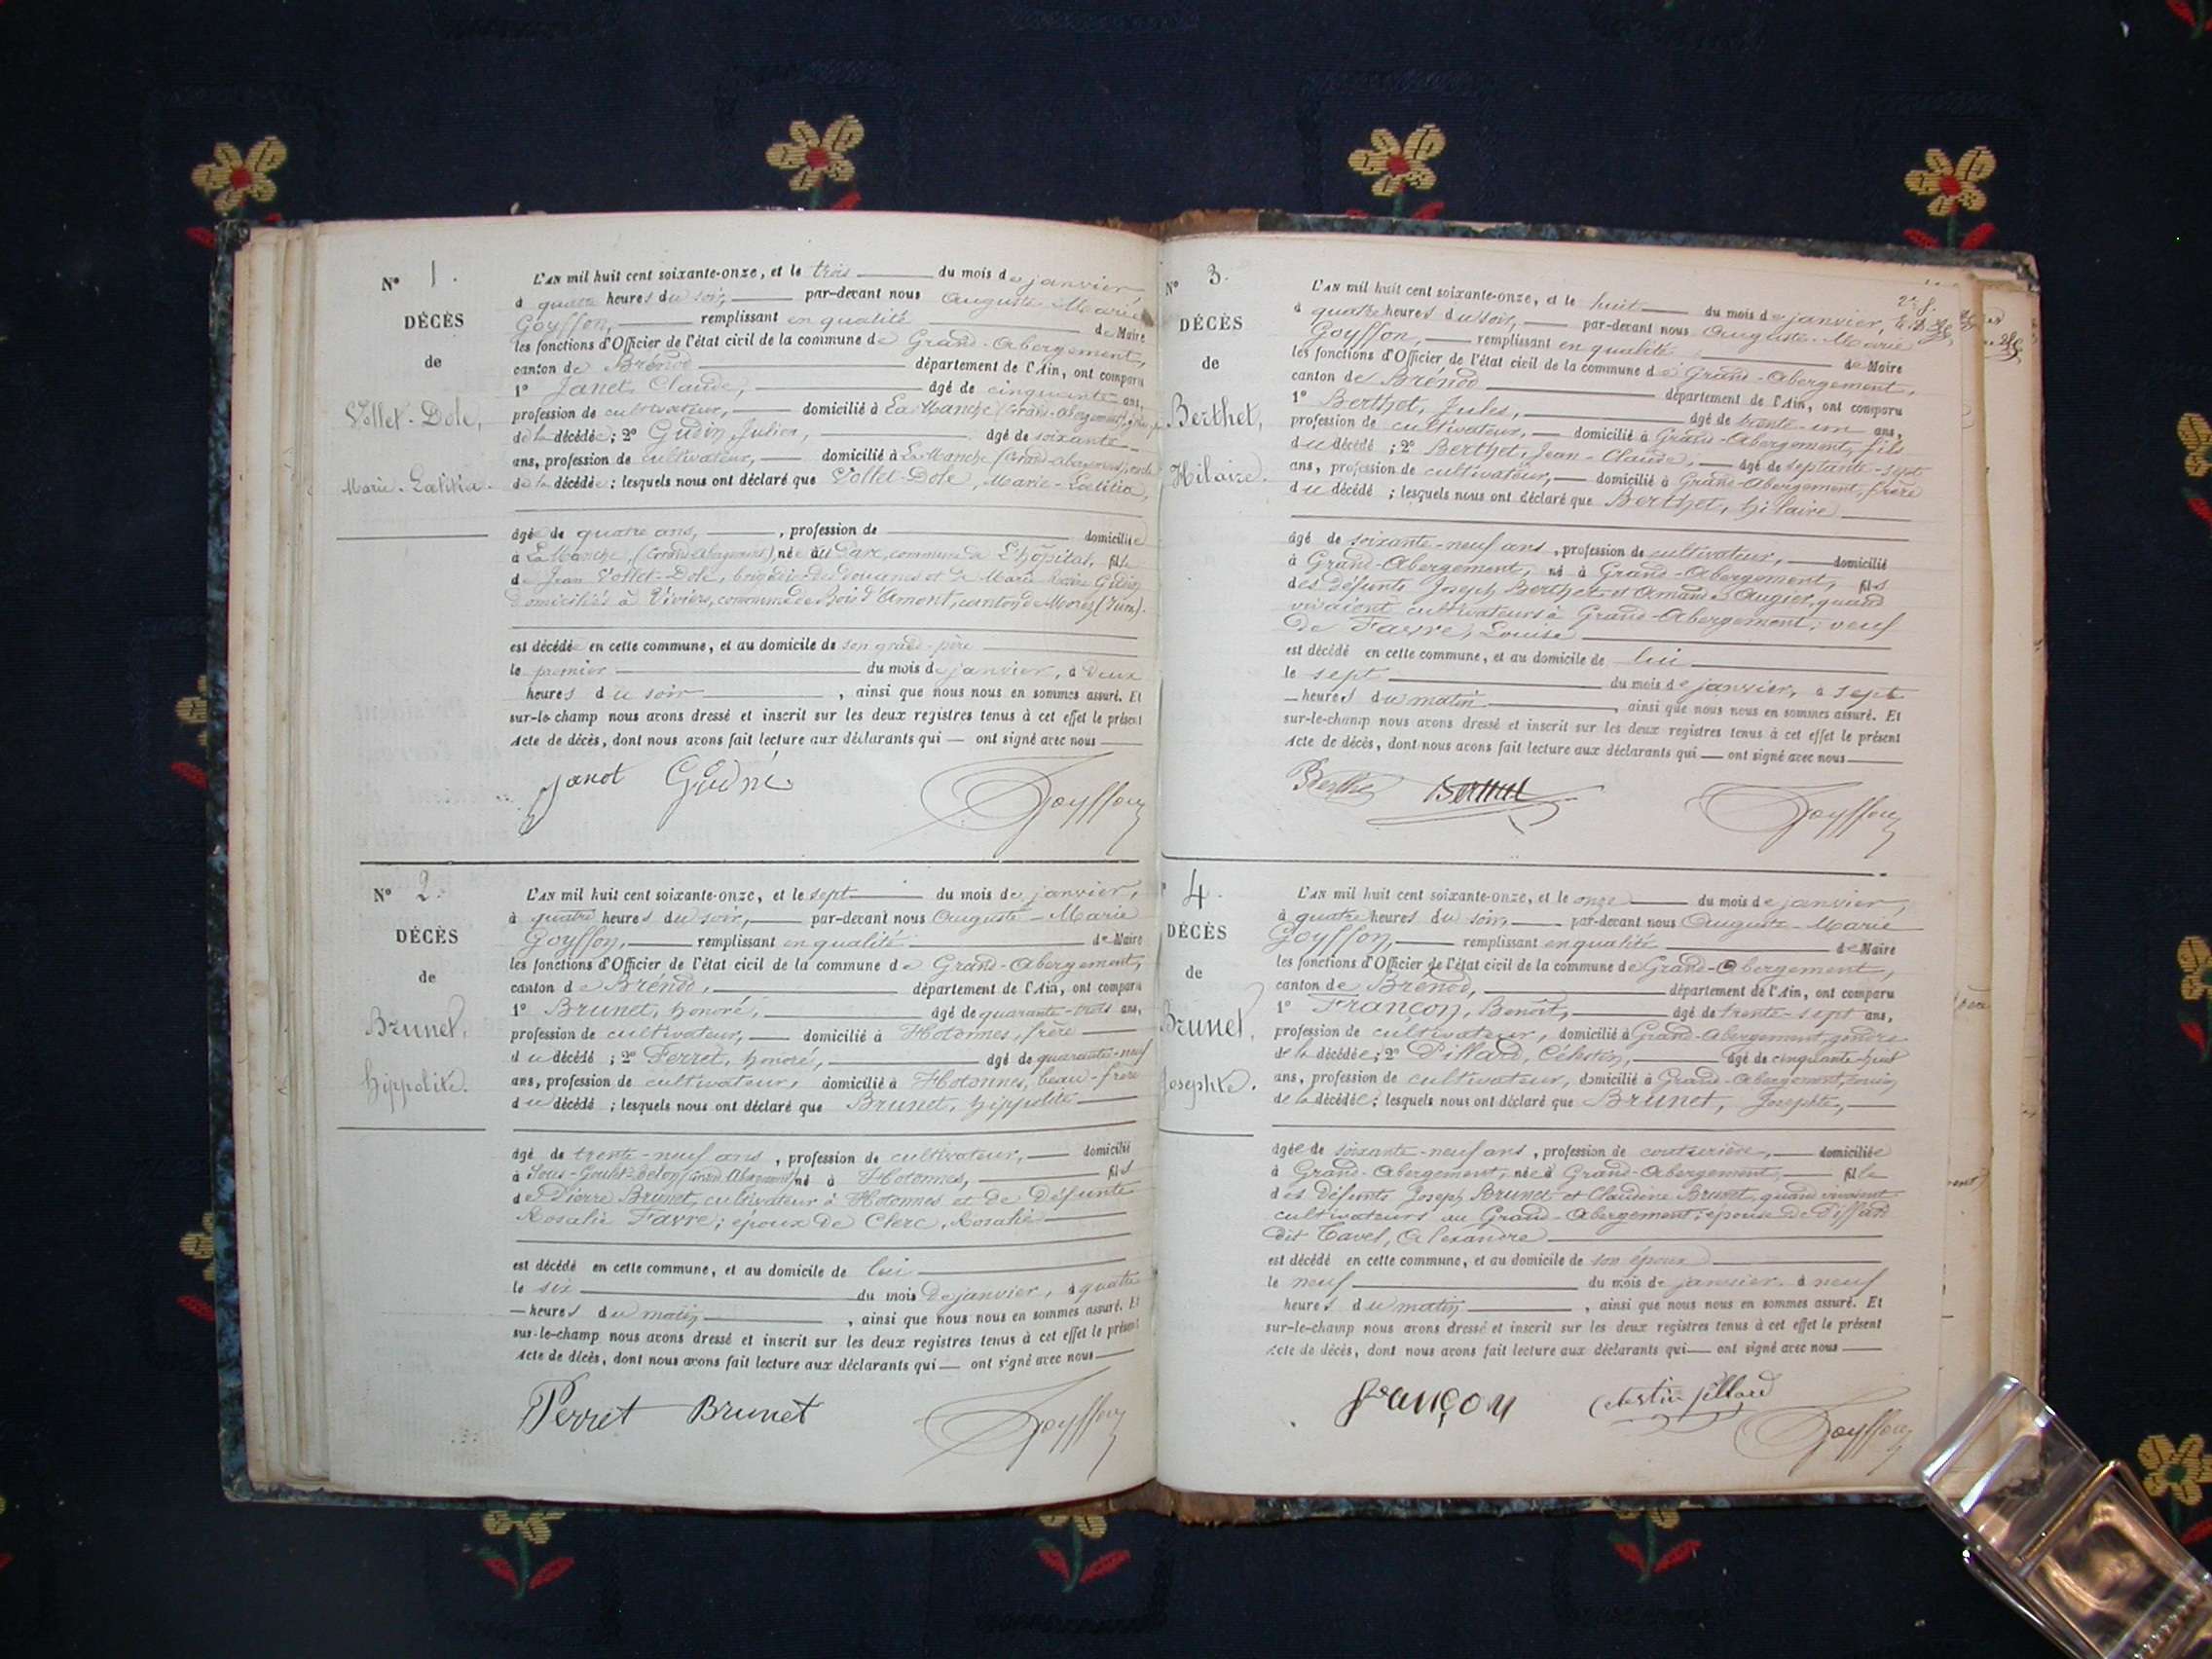 N° 1.
DÉCÈS
de
Vollet-Dole,
Marie-Lætitia.
L'AN mil huit cent soixante-onze, et le trois du mois de janvier
à quatre heures du soir, par-devant nous Auguste-Marie
Goyffon, remplissant en qualité de Maire
les fonctions d'Officier de l'état civil de la commune de Grand-Abergement,
canton de Brénod département de l'Ain, ont comparu
1° Janet Claude, âgé de cinquante ans,
profession de cultivateur, domicilié à La Manche (Grand-Abergement)
de la décédée; 2° Gudin Julien, âgé de soixante
ans, profession de cultivateur, domicilié à La Manche (Grand-Abergement)
de la décédée; lesquels nous ont déclaré que Vollet-Dole, Marie-Lætitia,
âgée de quatre ans, , profession de domiciliée
à La Manche, (Grand-Abergement) née au commune de L'hôpital, fille
de Jean Vollet-Dole, brigadier des douanes et de Marie Gudin
domiciliés à Vivier, commune de Bois d'Amont, canton de Morez (Jura).
est décédée en cette commune, et au domicile de son grand-père
le premier du mois de janvier, à deux
heures du soir , ainsi que nous nous en sommes assuré. Et
sur-le-champ nous avons dressé et inscrit sur les deux registres tenus à cet effet le présent
Acte de décès, dont nous avons fait lecture aux déclarants qui — ont signé avec nous
Janet Gudin Goyffon
N° 2.
DÉCÈS
de
Brunet,
hippolite.
L'AN mil huit cent soixante-onze, et le sept du mois de janvier,
à quatre heures du soir, par-devant nous Auguste-Marie
Goyffon, remplissant en qualité de Maire
les fonctions d'Officier de l'état civil de la commune de Grand-Abergement,
canton de Brénod, département de l'Ain, ont comparu
1° Brunet, honoré, âgé de quarante-trois ans,
profession de cultivateur, domicilié à Hotonnes, frère
du décédé ; 2° Perret, honoré, âgé de quarante-neuf
ans, profession de cultivateur, domicilié à Hotonnes, beau-frère
du décédé ; lesquels nous ont déclaré que Brunet, hippolite
âgé de trente-neuf ans , profession de cultivateur, domicilié
à (Grand Abergement) né à Hotonnes, fils
de Pierre Brunet, cultivateur à Hotonnes et de défunte
Rosalie Favre; époux de Clerc, Rosalie
est décédé en cette commune, et au domicile de lui
le six du mois de janvier, à quatre
heures du matin , ainsi que nous nous en sommes assuré. Et
sur-le-champ nous avons dressé et inscrit sur les deux registres tenus à cet effet le présent
Acte de décès, dont nous avons fait lecture aux déclarants qui — ont signé avec nous
Perret Brunet Goyffon
N° 3.
DÉCÈS
de
Berthet,
Hilaire.
L'AN mil huit cent soixante-onze, et le huit du mois de janvier,
à quatre heures du soir, par-devant nous Auguste-Marie
Goyffon, remplissant en qualité de Maire
les fonctions d'Officier de l'état civil de la commune de Grand-Abergement,
canton de Brénod département de l'Ain, ont comparu
1° Berthet, Jules, âgé de trente-un ans,
profession de cultivateur, domicilié à Grand-Abergement, fils
du décédé ; 2° Berthet, Jean-Claude, âgé de septante-sept
ans, profession de cultivateur, domicilié à Grand-Abergement, frère
du décédé ; lesquels nous ont déclaré que Berthet, hilaire
âgé de soixante-neuf ans , profession de cultivateur, domicilié
à Grand-Abergement, né à Grand-Abergement, fils
des défunts Joseph Berthet et Amande Augier, quand
vivaient cultivateurs à Grand-Abergement; veuf
de Favre, Louise
est décédé en cette commune, et au domicile de lui
le sept du mois de janvier, à sept
heures du matin , ainsi que nous nous en sommes assuré. Et
sur-le-champ nous avons dressé et inscrit sur les deux registres tenus à cet effet le présent
Acte de décès, dont nous avons fait lecture aux déclarants qui — ont signé avec nous
Berthet Berthet Goyffon
4.
DÉCÈS
de
Brunet,
Josephte.
L'AN mil huit cent soixante-onze, et le onze du mois de janvier,
à quatre heures du soir, par-devant nous Auguste-Marie
Goyffon, remplissant en qualité de Maire
les fonctions d'Officier de l'état civil de la commune de Grand-Abergement,
canton de Brénod, département de l'Ain, ont comparu
1° Françon, Benoît, âgé de trente-sept ans,
profession de cultivateur, domicilié à Grand-Abergement, gendre
de la décédée; 2° Pillard, Célestin, âgé de cinquante-huit
ans, profession de cultivateur, domicilié à Grand-Abergement,
de la décédée; lesquels nous ont déclaré que Brunet, Josephte,
âgée de soixante-neuf ans, profession de couturière, domiciliée
à Grand-Abergement, née à Grand-Abergement, fille
des défunts Joseph Brunet et Claudine Brunet, quand vivaient
cultivateurs au Grand-Abergement; épouse de Pillard
dit Tavel, Alexandre
est décédé en cette commune, et au domicile de son époux
le neuf du mois de janvier à neuf
heures du matin , ainsi que nous nous en sommes assuré. Et
sur-le-champ nous avons dressé et inscrit sur les deux registres tenus à cet effet le présent
Acte de décès, dont nous avons fait lecture aux déclarants qui — ont signé avec nous
françon Celestin pillard Goyffon